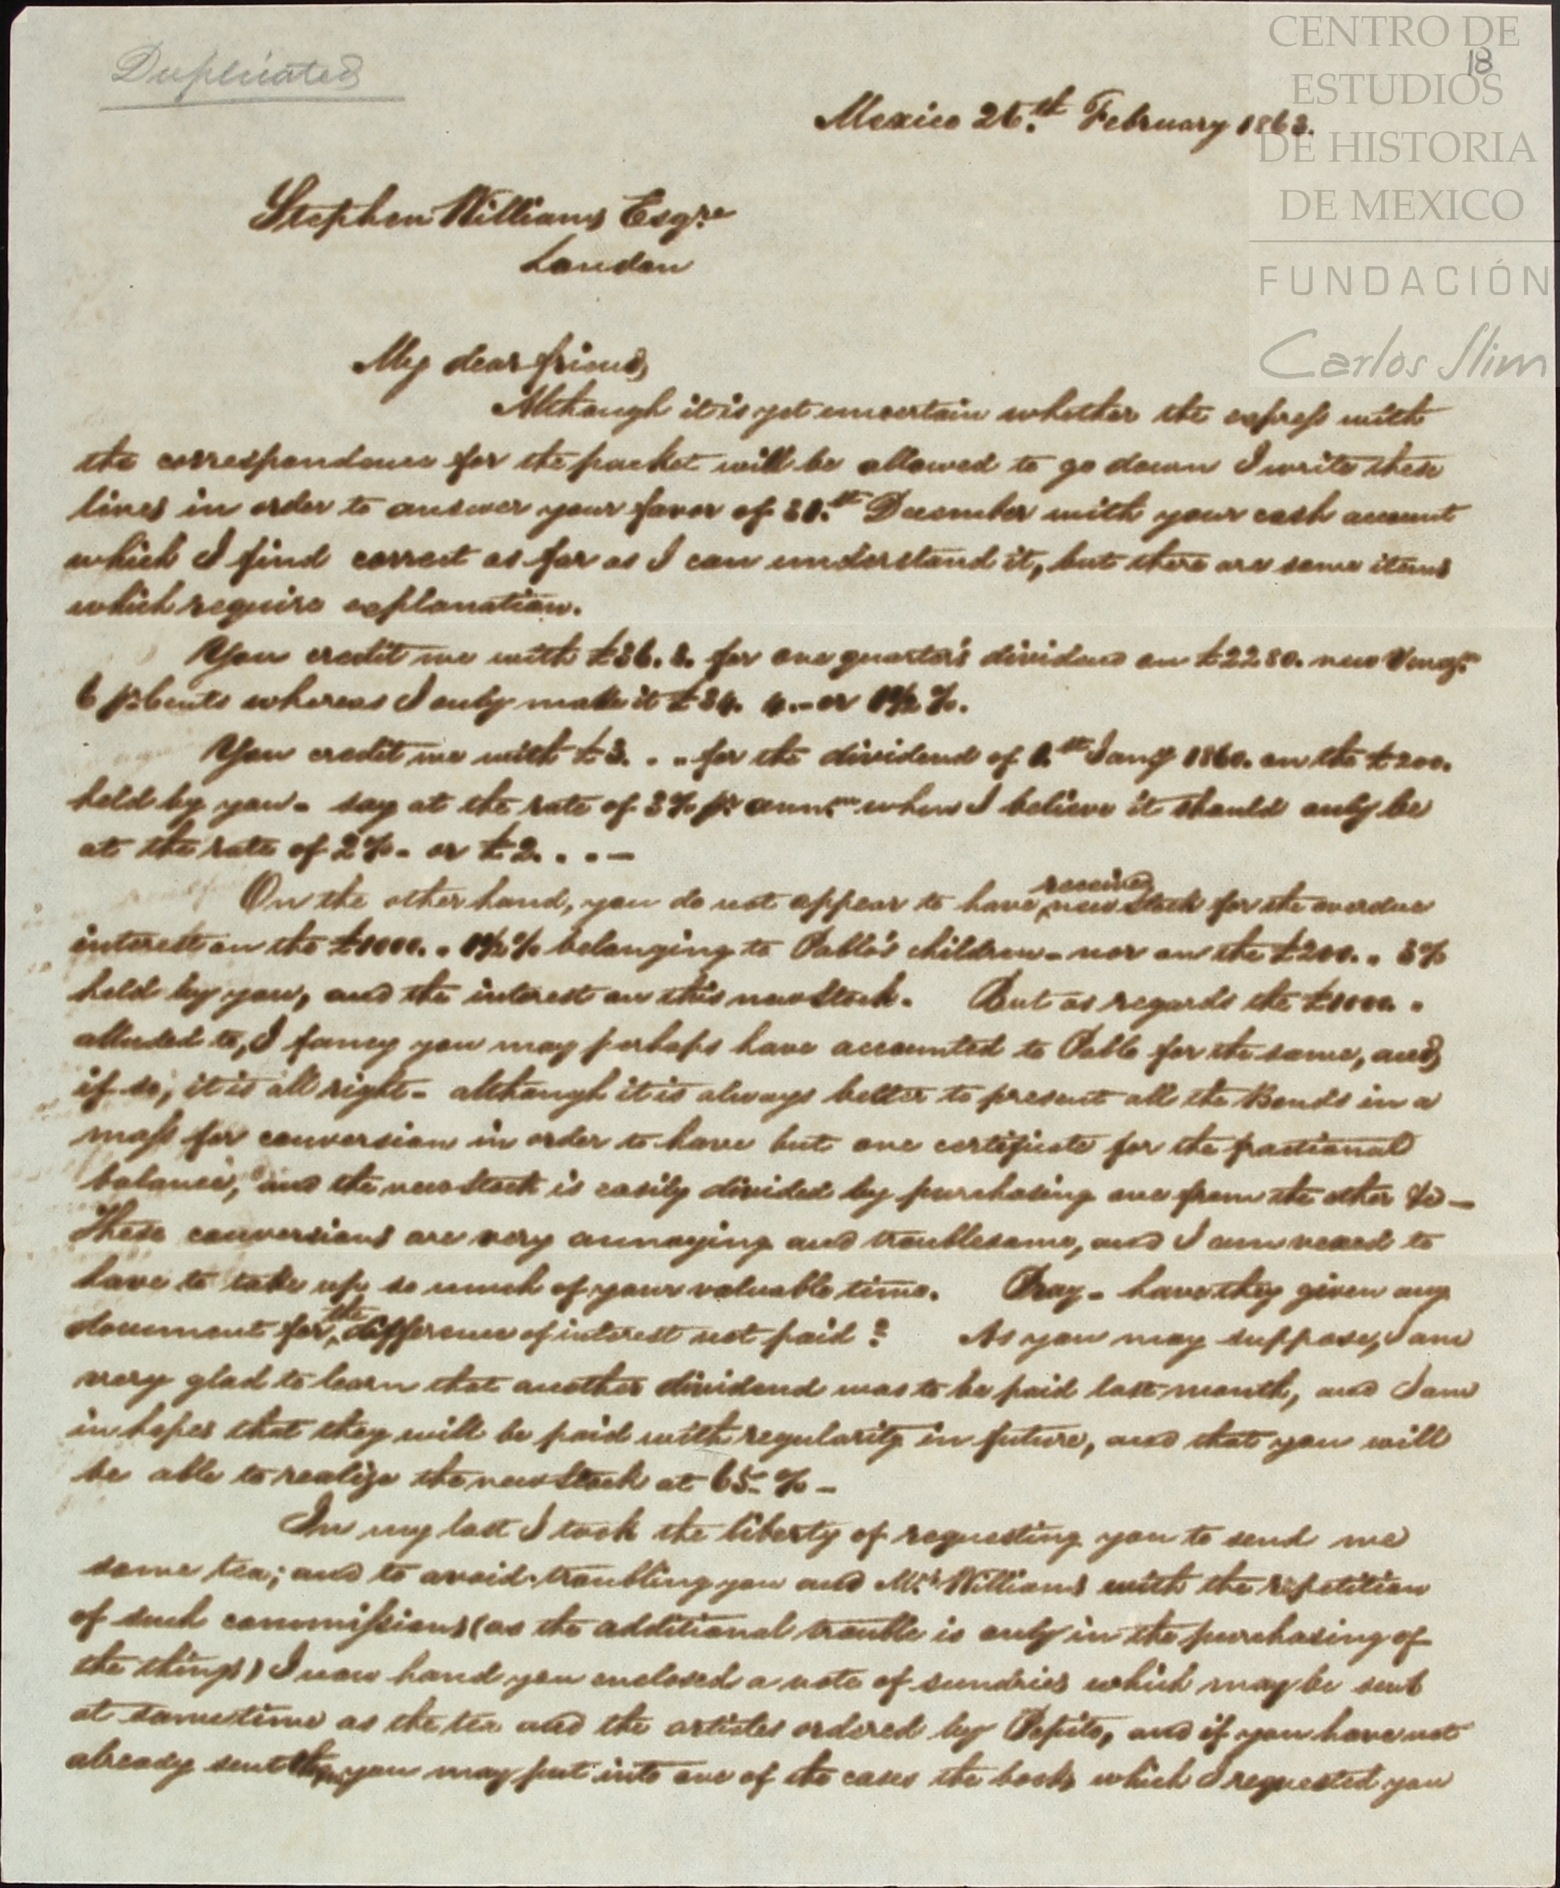 Duplicated
18
CENTRO DE
ESTUDIOS
DE HISTORIA
DE MEXICO
FUNDACIÓN
Carlos Slim
Mexico 26.th February 1863.
Stephen Williams Esqre
London
My dear friend,
Although it is yet uncertain whether the express with
the correspondence for the packet will be allowed to go down I write these
lines in order to answer your favor of 31.st December with your cash account
which I find correct as far as I can understand it, but there are some items
which require explanation.
You credit me with £36. 3. for one quarter's dividend on £2280. new
6 pr Cents whereas I only make it £34. 4.- or 1 1/2 %.
You credit me with £3. . . for the dividend of 1.st Jany 1860. on the £200.
held by you - say at the rate of 3% pr. ann.m when I believe it should only be
at the rate of 2%. or £2. . . -
On the other hand, you do not appear to have received new Stock for the overdue
interest on the £1000. . 1 1/2 % belonging to Pablo's children - nor on the £200. . 3%
held by you, and the interest on this new Stock. But as regards the £1000. .
alluded to, I fancy you may perhaps have accounted to Pablo for the same, and,
if so, it is all right - although it is always better to present all the Bonds in a
mass for conversion in order to have but one certificate for the fractional
balance, and the new Stock is easily divided by purchasing one from the other &c -
These conversions are very annoying and troublesome, and I am vexed to
have to take up so much of your valuable time. Pray - have they given any
document for the difference of interest not paid? As you may suppose, I am
very glad to learn that another dividend was to be paid last month, and I am
in hopes that they will be paid with regularity in future, and that you will
be able to realize the new Stock at 65 % -
In my last I took the liberty of requesting you to send me
some tea; and to avoid troubling you and Mrs Williams with the repetition
of such commissions (as the additional trouble is only in the purchasing of
the things) I now hand you enclosed a note of sundries which may be sent
at same time as the tea and the articles ordered by Pepito, and if you have not
already sent them, you may put into one of the cases the books which I requested you